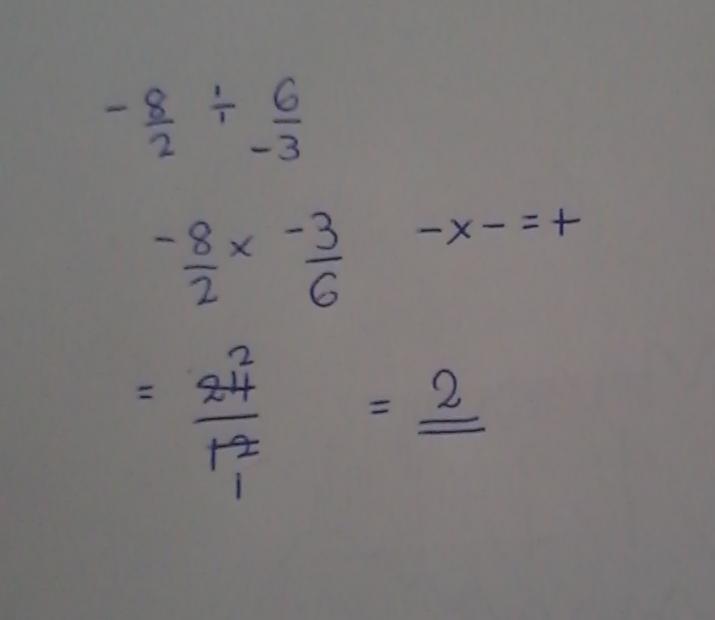 -8/2 ÷ 6/-3
-8/2 × -3/6 - × - = +
= 24/12 2/1 = 2